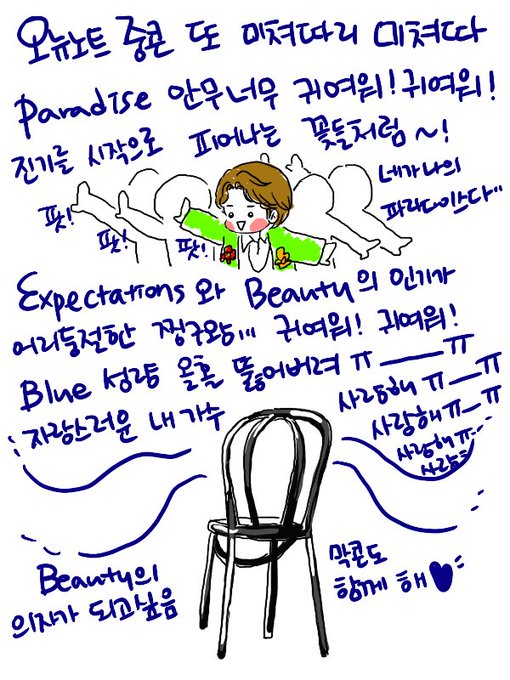 오뉴노트 중콘 또 미쳐따리 미쳐따
Paradise 안무너무 귀여워! 귀여워!
진기를 시작으로 피어나는 꽃들처럼~!
네가 나의
파라다이스다"
팟!
팟!
팟!
Expectations 와 Beauty의 인기가
어리둥절한 찡구왕... 귀여워! 귀여워!
Blue 성량 올홀 뚫어버려 ㅠ——ㅠ
자랑스러운 내 가수
사랑해 ㅠ—ㅠ
사랑해 ㅠ—ㅠ
사랑해 ㅠ...
사랑
Beauty의
의자가 되고싶음
막콘도
함께 해